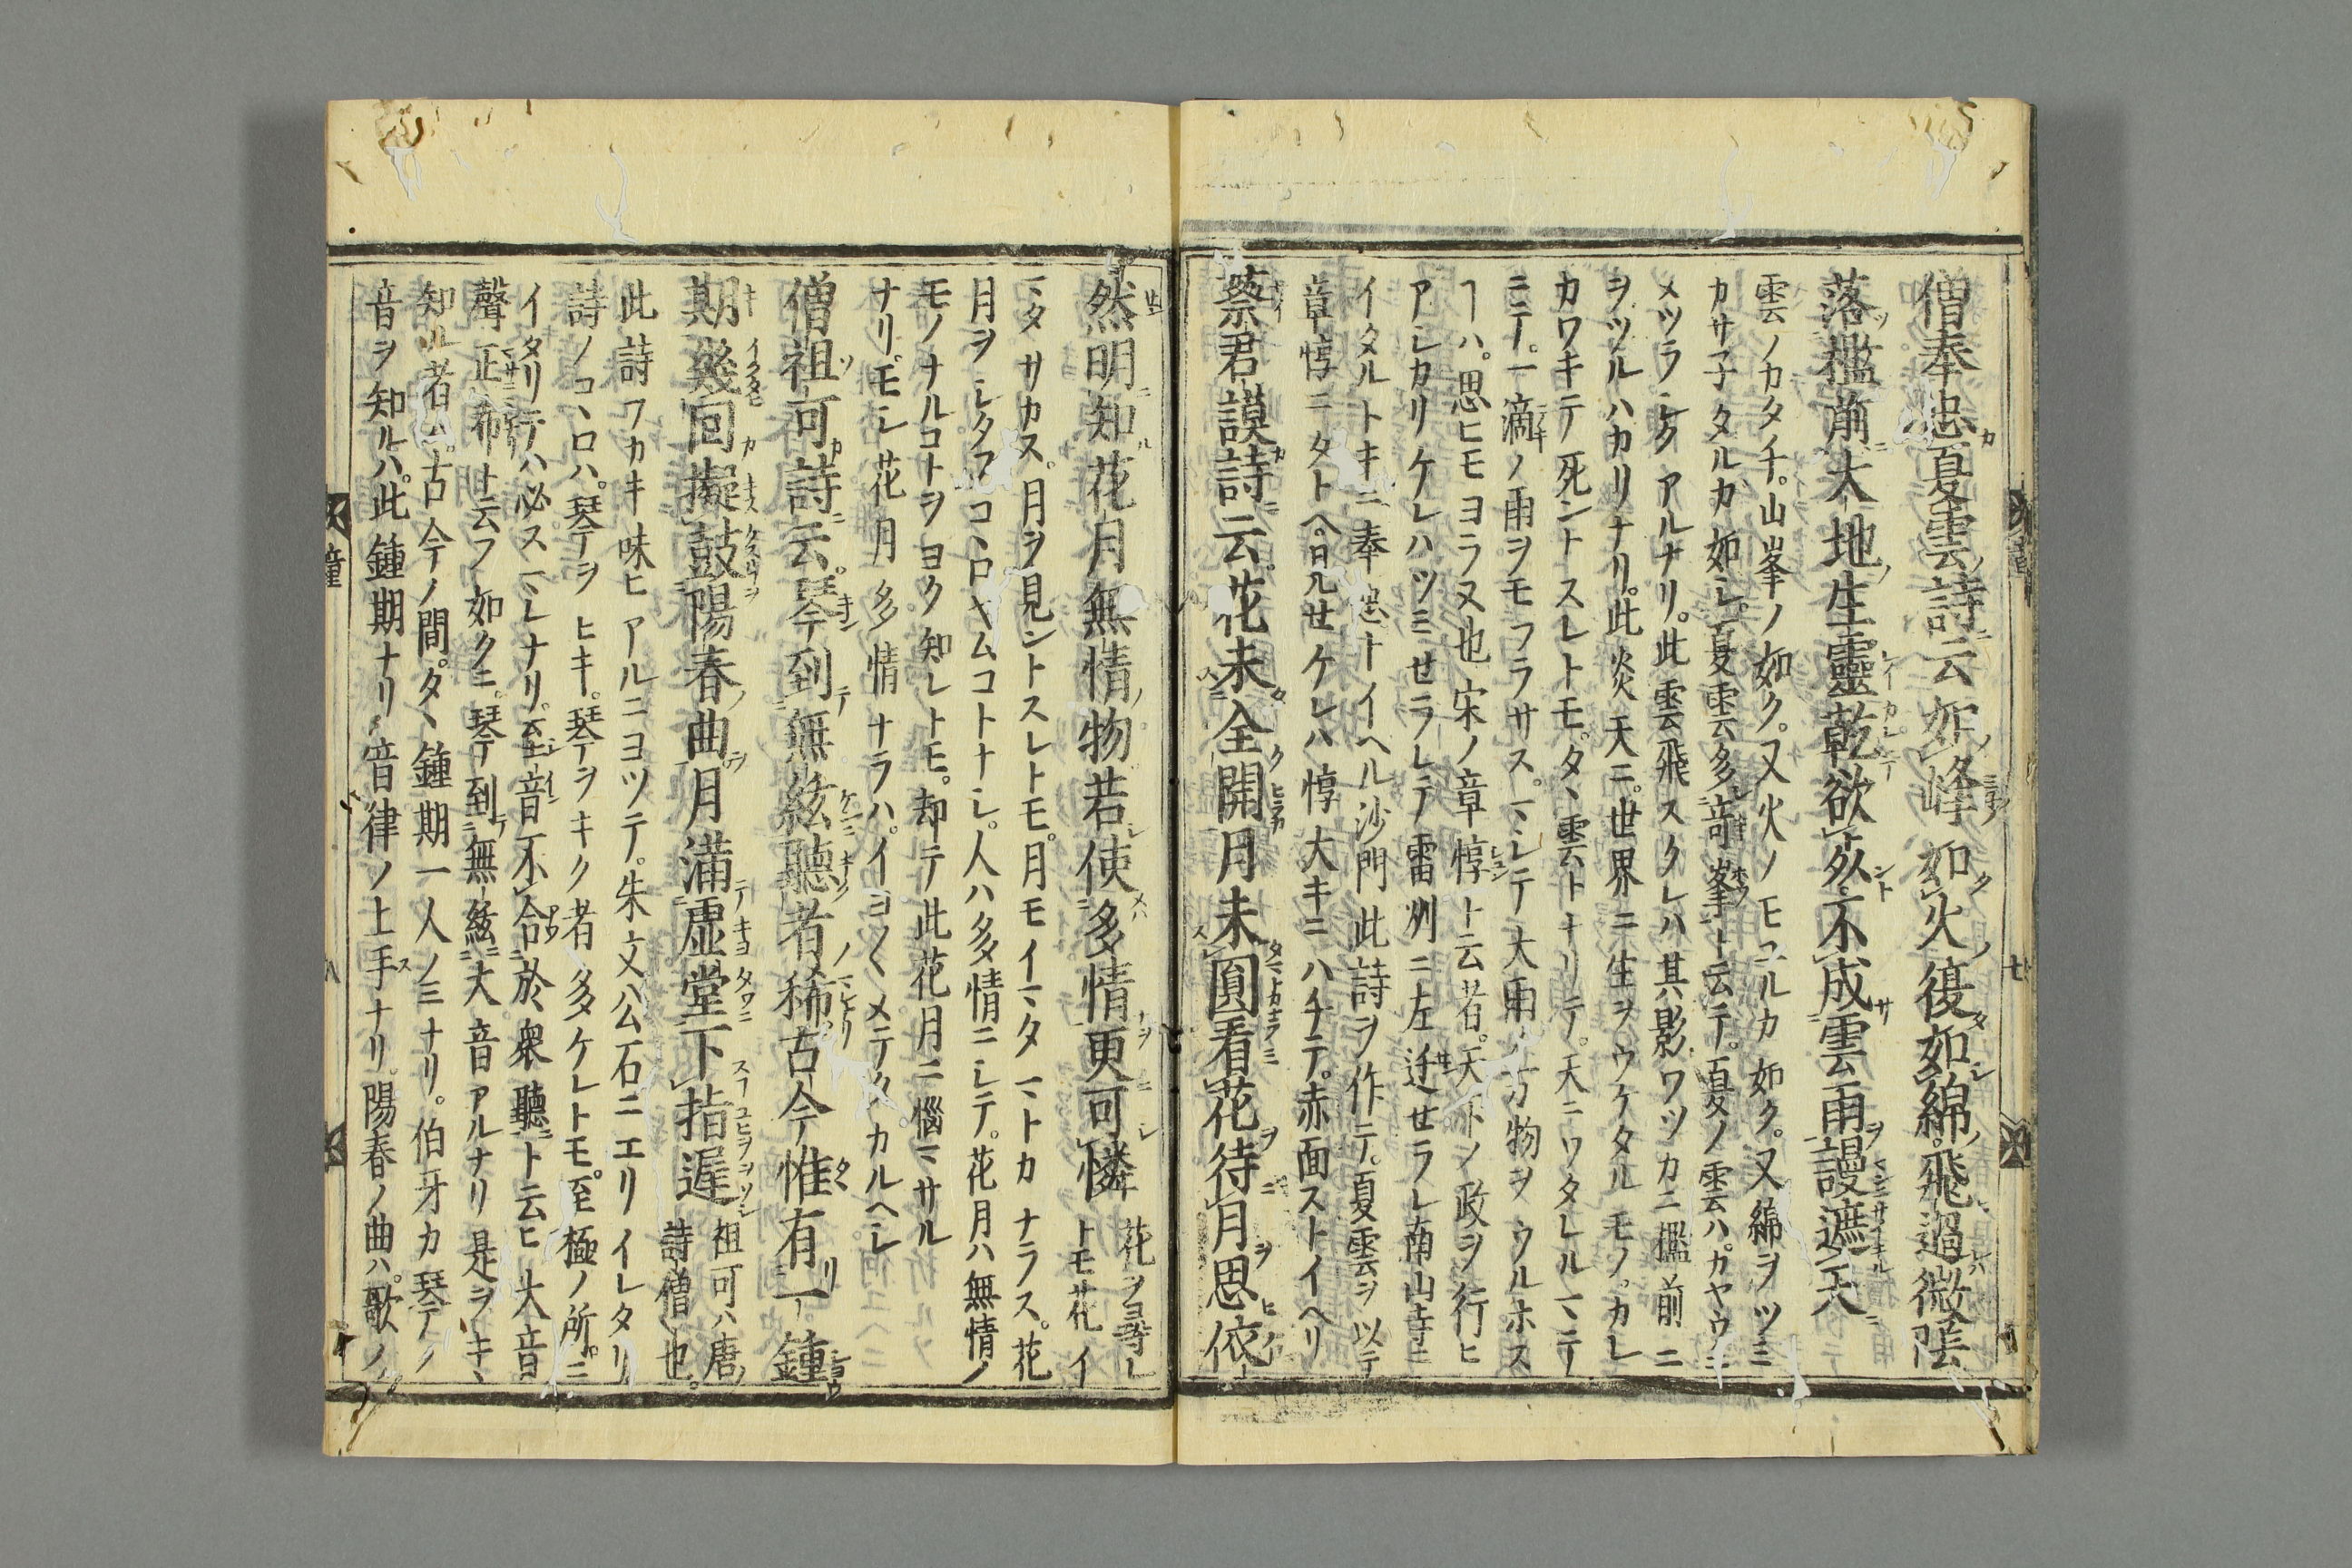 僧奉忠夏雲詩云如峰如火復如綿飛過微陰
落檻前大地生靈乾欲死不成雲雨謾遮天
雲ノカタチ。山峯ノ如ク。又火ノモユルカ如ク。又綿ヲツミ
カサ子タルカ如シ。夏雲多奇峯ト云テ。夏ノ雲ハ。カヤウニ
メツラシクアルナリ。此雲飛スクレハ其影ワツカニ檻前ニ
ヲツルハカリナリ。此炎天ニ。世界ニ生ヲウケタルモノ。カレ
カワキテ死ントスレトモ。タヽ雲トナリテ。天ニワタレルマテ
ニテ。一滴ノ雨ヲモフラサス。マシテ大雨万物ヲウルホス
ヿハ。思ヒモヨラヌ也宋ノ章惇ト云者。天下ノ政ヲ行ヒ
アシカリケレハツミせラレテ雷州ニ左迁せラレ南山寺ニ
イタルトキニ奉忠トイヘル沙門此詩ヲ作テ。夏雲ヲ以テ
章惇ニタトヘ。日比せケレハ惇大キニハチテ。赤面ストイヘリ
蔡君謨詩云花未全開月未圓看花待月思依
然明知花月無情物若使多情更可憐
花ヲ尋レ
トモ花イ
マタサカス。月ヲ見ントスレトモ。月モイマタマトカナラス。花
月ヲシタフコヽロヤムコトナシ。人ハ多情ニシテ。花月ハ無情ノ
モノナルコトヲヨク知レトモ。却テ此花月ニ惱マサル
ナリ。モシ花月多情ナラハ。イヨ〱メテタカルヘシ
僧祖可詩云。琴到無絃聽者稀古今惟有一鍾
期幾回擬鼓陽春曲月滿虛堂下指遲
祖可ハ唐ノ
詩僧也。
此詩フカキ味ヒアルニヨツテ。朱文公石ニエリイレタリ
詩ノコヽロハ。琴ヲヒキ。琴ヲキク者多ケレトモ。至極ノ所ニ
イタリテハ必スマレナリ。至音不合於衆聽ト云ヒ大音
聲正希ト云フ如クニ。琴到無絃大音アルナリ是ヲキヽ
知ル者ハ。古今ノ間。タヽ鍾期一人ノミナリ。伯牙カ琴ノ
音ヲ知ルハ。此鍾期ナリ音律ノ上手ナリ陽春ノ曲ハ。歌ノ